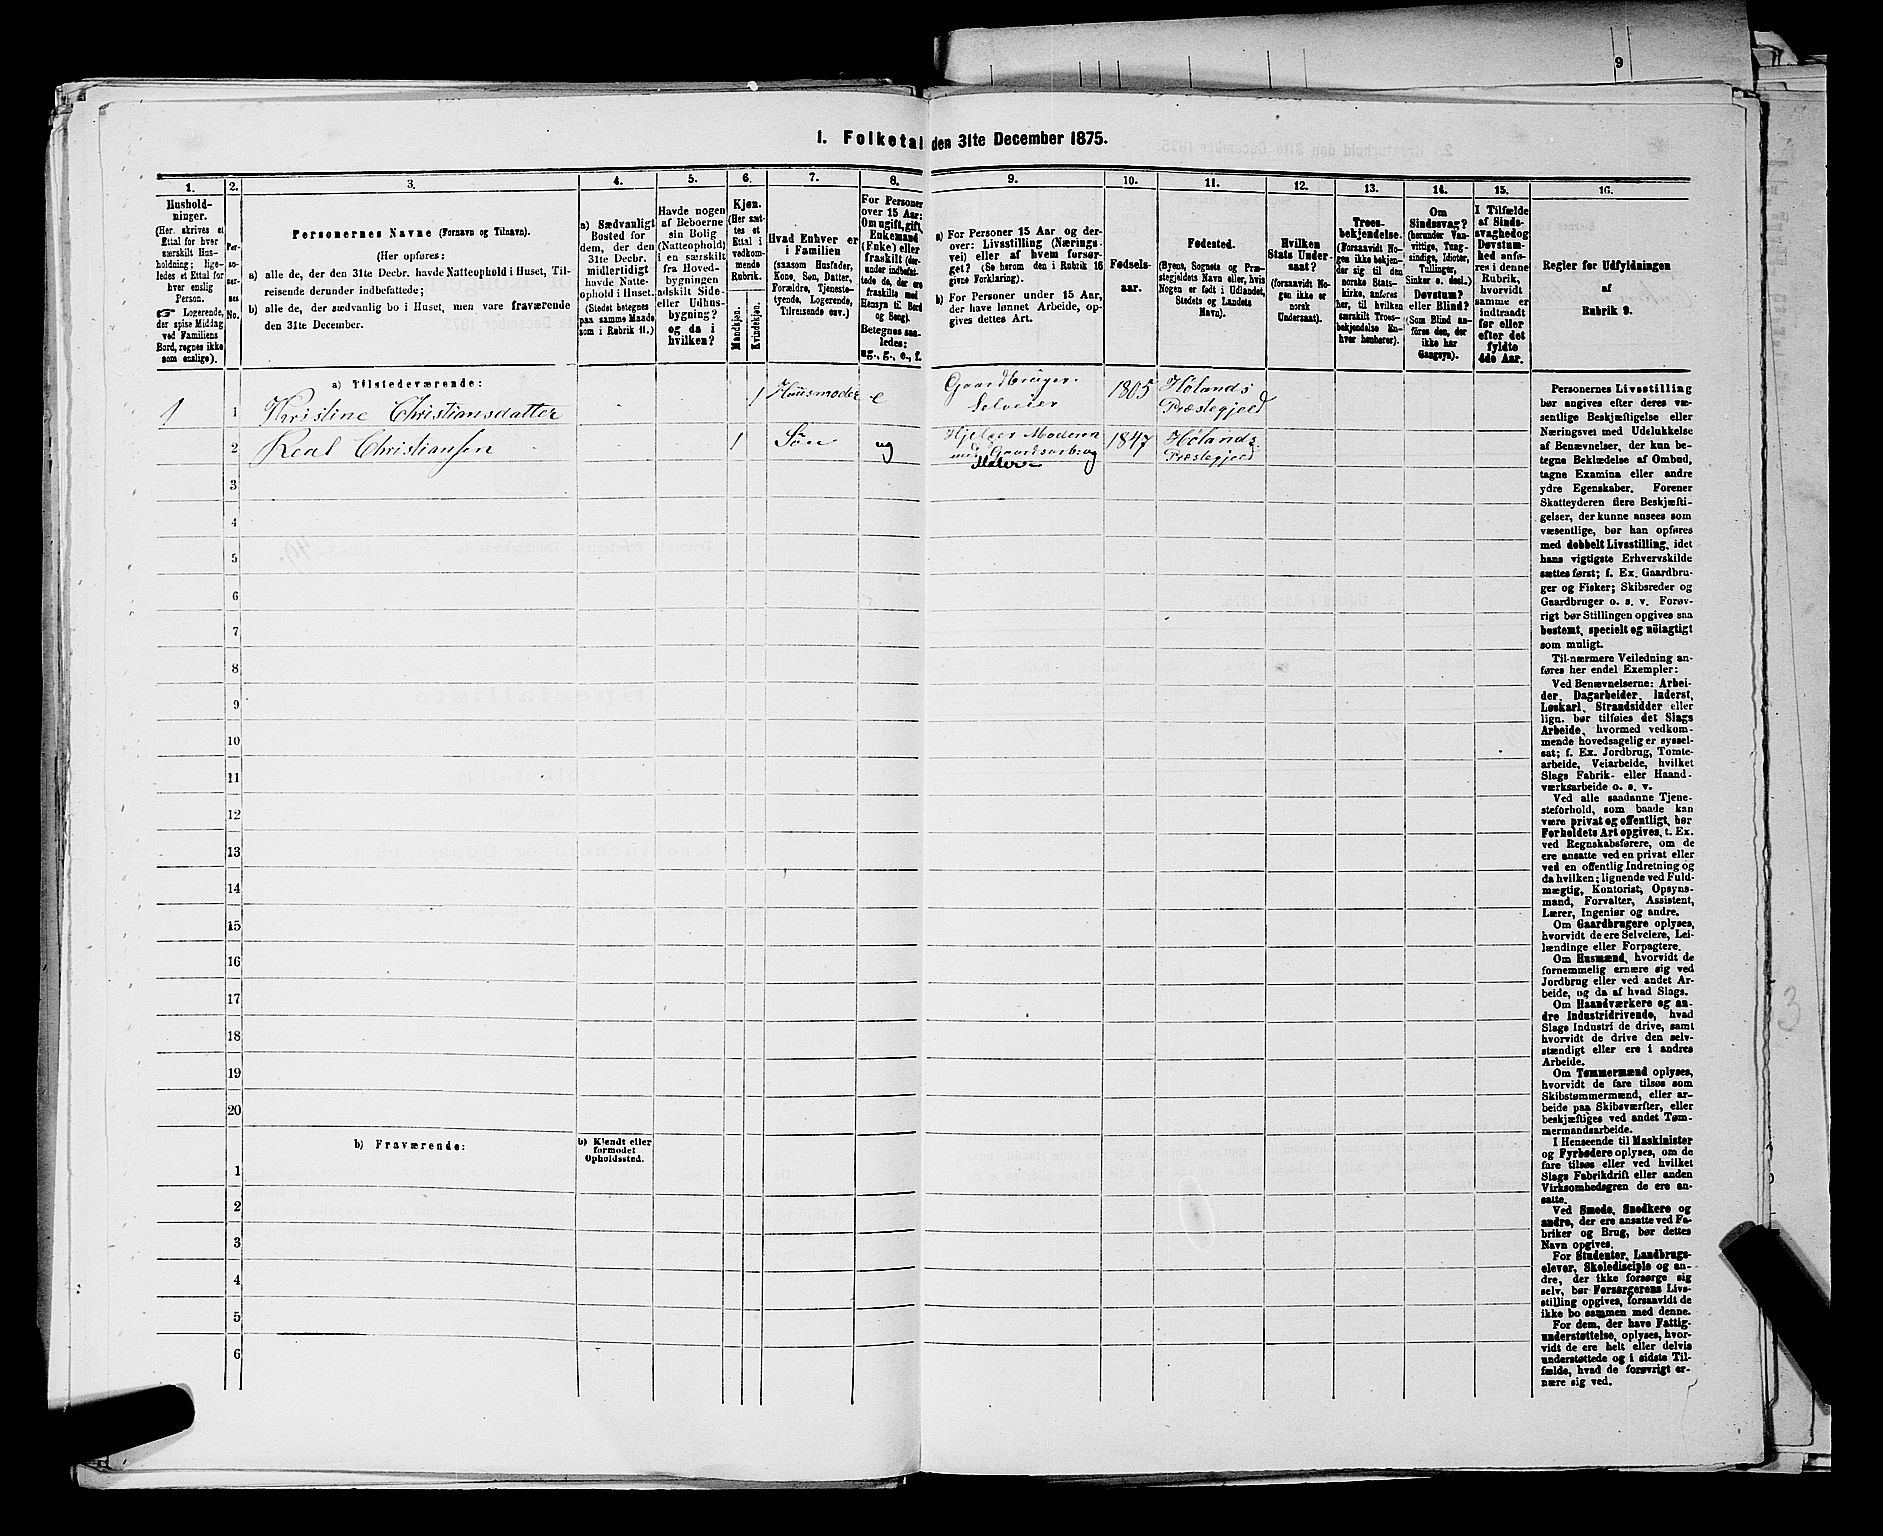 9
1. Folketal den 31te December 1875.
1. 2. 3. 4. 5. 6. 7. 8. 9. 10. 11. 12. 13. 14. 15. 16.
Hushold-
ninger.
(Her skrives et
Ettal for hver
særskilt Hus-
holdning; lige-
ledes et Ettal for
hver enslig
Person.
☞ Logerende,
der spise Middag
ved Familiens
Bord, regnes ikke
som enslige).
Per-
so-
ner-
nes
No.
Personernes Navne (Fornavn og Tilnavn).
(Her opføres:
a) alle de, der den 31te Decbr. havde Natteophold i Huset, Til-
reisende derunder indbefattede;
b) alle de, der sædvanlig bo i Huset, men vare fraværende
den 31te December.
a) Sædvanligt
Bosted for
dem, der den
31te Decbr.
midlertidigt
havde Natte-
ophold i Huset.
(Stedet betegnes
paa samme Maade
som i Rubrik 11.)
Havde nogen
af Beboerne
sin Bolig
(Natteophold)
i en særskilt
fra Hoved-
bygningen
adskilt Side-
eller Udhus-
bygning?
og da i
hvilken?
Kjøn.
(Her sæt-
tes et
Ettal i
vedkom-
mende
Rubrik.
Mandkjøn.
Kvindekjøn.
Hvad Enhver er
i Familien
(saasom Husfader,
Kone, Søn, Datter,
Forældre, Tjeneste-
tyende, Logerende,
Tilreisende osv.)
For Personer
over 15 Aar:
Om ugift, gift,
Enkemand
(Enke) eller
fraskilt (der-
under indbefat-
tede de, der ere
fraskilte med
Hensyn til Bord
og Seng).
Betegnes saa-
ledes:
ug., g., e., f.
a) For Personer 15 Aar og der-
over: Livsstilling (Nærings-
vei) eller af hvem forsør-
get? (Se herom den i Rubrik 16
givne Forklaring).
b) For Personer under 15 Aar,
der have lønnet Arbeide, op-
gives dettes Art.
Fødsels-
aar.
Fødested.
(Byens, Sognets og Præ-
stegjeldets Navn eller, hvis
Nogen er født i Udlandet,
Stedets og Landets
Navn).
Hvilken
Stats Under-
saat?
(forsaavidt No-
gen ikke er
norsk
Undersaat).
Troes-
bekjendelse.
(Forsaavidt No-
gen ikke bekjen-
der sig til den
norske Stats-
kirke, anføres
her, til hvilken
særskilt Troes-
bekjendelse En-
hver henhører).
Om
Sindssvag?
(herunder Van-
vittige, Tung-
sindige, Idioter,
Tullinger,
Sinker o. desl.)
Døvstum?
eller Blind?
(Som Blind an-
føres den, der
ikke har
Gangsyn).
I Tilfælde
af Sinds-
svaghed og
Døvstum-
hed anfø-
res i denne
Rubrik,
hvorvidt
samme er
indtraadt
før eller
efter det
fyldte
4de Aar.
Regler for Udfyldningen
af
Rubrik 9.
a) Tilstedeværende:
1 1 Kristine Christiansdatter 1 Huusmoder e Gaardbruger Selveier 1805 Hølands Præstegjeld
2 Karl Christiansen 1 Søn ug Hjelper Moderen med Gaardsarbeide 1847 Hølands Præstegjeld
3
4
5
6
7
8
9
10
11
12
13
14
15
16
17
18
19
20
b) Fraværende:
b) Kjendt eller
formodet
Opholdssted.
1
2
3
4
5
6
Personernes Livsstilling
bør angives efter deres væ-
sentlige Beskjæftigelse eller
Næringsvei med Udelukkelse
af Benævnelser, der kun be-
tegne Beklædelse af Ombud,
tagne Examina eller andre
ydre Egenskaber. Forener
Skatteyderen flere Beskjæfti-
gelser, der kunne ansees som
væsentlige, bør han opføres
med dobbelt Livsstilling, idet
hans vigtigste Erhvervskilde
sættes først; f. Ex. Gaardbru-
ger og Fisker; Skibsreder og
Gaardbruger o. s. v. Forøv-
rigt bør Stillingen opgives saa
bestemt, specielt og nöiagtigt
som muligt.
Til nærmere Veiledning an-
føres her endel Exempler:
Ved Benævnelserne: Arbei-
der, Dagarbeider, Inderst,
Løskarl, Strandsidder eller
lign. bør tilføies det Slags
Arbeide, hvormed vedkom-
mende hovedsagelig er syssel-
sat; f. Ex. Jordbrug, Tomte-
arbeide, Veiarbeide, hvilket
Slags Fabrik- eller Haand-
værksarbeide o. s. v.
Ved alle saadanne Tjene-
steforhold, som baade kan
være privat og offentligt, bør
Forholdets Art opgives, t. Ex.
ved Regnskabsførere, om de
ere ansatte ved en privat eller
ved en offentlig Indretning og
da hvilken; lignende ved Fuld-
mægtig, Kontorist, Opsyns-
mand, Forvalter, Assistent,
Lærer, Ingeniør og andre.
Om Gaardbrugere oplyses,
hvorvidt de ere Selveiere, Lei-
lændinge eller Forpagtere.
Om Husmænd, hvorvidt de
fornemmelig ernære sig ved
Jordbrug eller ved andet Ar-
beide, og da af hvad Slags.
Om Haandværkere og an-
dre Industridrivende, hvad
Slags Industri de drive, samt
hvorvidt de drive den selv-
stændigt eller ere i andres
Arbeide.
Om Tømmermænd oplyses,
hvorvidt de fare tilsøs som
Skibstømmermænd, eller ar-
beide paa Skibsværfter, eller
beskjæftiges ved andet Tøm-
mermandsarbeide.
I Henseende til Maskinister
og Fyrbødere oplyses, om de
fare tilsøs eller ved hvilket
Slags Fabrikdrift eller anden
Virksomhedsgren de ere an-
satte.
Ved Smede, Snedkere og
andre, der ere ansatte ved Fa-
briker og Brug, bør dettes
Navn opgives.
For Studenter, Landbrugs-
elever, Skoledisciple og an-
dre, der ikke forsørge sig
selv, bør Forsørgerens Livs-
stilling opgives, forsaavidt de
ikke bo sammen med denne.
For dem, der have Fattig-
understøttelse, oplyses, hvor-
vidt de ere helt eller delvis
understøttede og i sidste Til-
fælde, hvad de forøvrigt er-
nære sig ved.
3